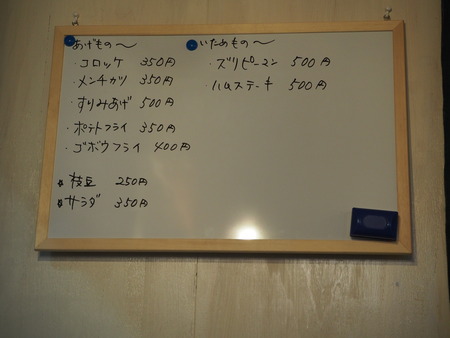 あげもの〜
・コロッケ 350円
・メンチカツ 350円
・すりみあげ 500円
・ポテトフライ 350円
・ゴボウフライ 400円
枝豆 250円
サラダ 350円
いためもの〜
・ズリピーマン 500円
・ハムステーキ 500円